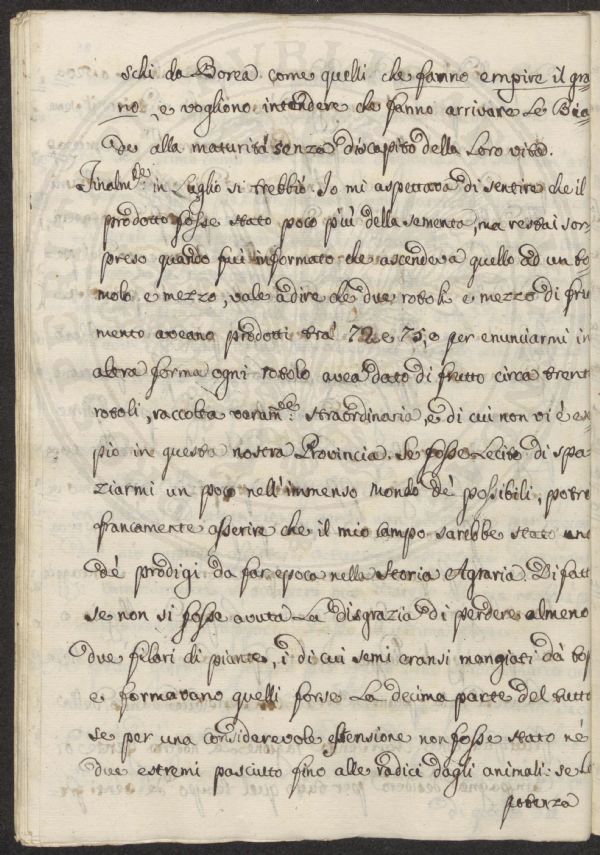 schi da Borea come quelli che fanno empire il gra-
no, e vogliono intendere che fanno arrivare Le Bia-
de alla maturità senza discapito della Loro vita.
Finalmde: in Luglio si trebbiò. Io mi aspettava di sentire che il
prodotto fosse stato poco più della sementa, ma restai sor-
preso quando fui informato che ascendeva quello ad un to-
molo e mezzo, vale à dire che due rotoli e mezzo di fru
mento aveano prodotti trà 72 e 75, o per enunciarmi in
altra forma ogni rotolo avea dato di frutto circa trent
rotoli, raccolta veramde: straordinaria, e di cui non vi è e
pio in questa nostra Provincia. Se fosse Lecito di spa-
ziarmi un poco nell'immenso Mondo dè possibili, potre
francamente asserire che il mio campo sarebbe stato uno
dè prodigi da far epoca nella Storia Agraria. Di fatt
se non si fosse avuta La disgrazia di perdere almeno
due filari di piante, i di cui semi eransi mangiati dà top
e formavano quelli forse La decima parte del tutto
se per una considerevole estensione non fosse stato nè
due estremi pasciuto fino alle radici dagli animali: se L
potenza